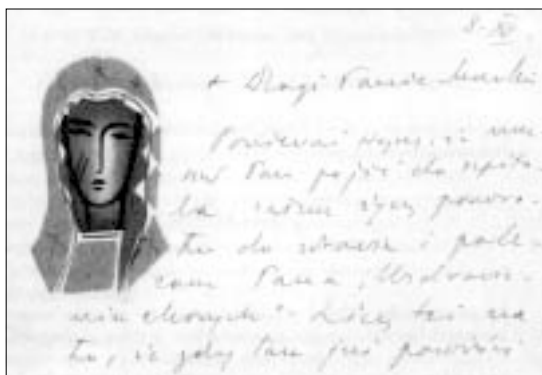 8-XI.
+ Drogi Panie Marku
Ponieważ wiem, iż
Pan pójść do szpita-
la życzę powro-
tu do zdrowia i pole-
cam Pana „Uzdrowie-
niu chorych”. Liczę też na
to, iż gdy Pan już powróci